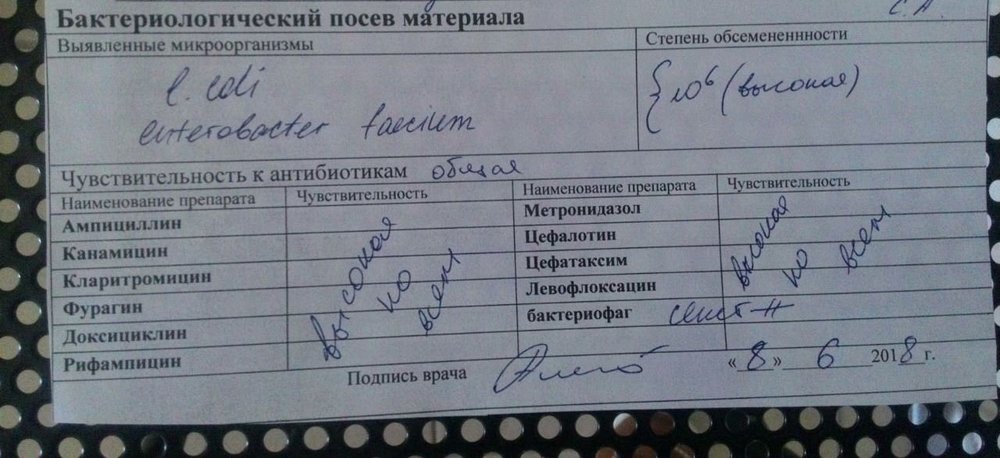 С.А.
Бактериологический посев материала
Выявленные микроорганизмы Степень обсемененнности
E. coli
enterobacter faecium
10⁶ (высокая)
Чувствительность к антибиотикам общая
Наименование препарата Чувствительность Наименование препарата Чувствительность
Ампициллин Метронидазол
Канамицин Цефалотин
Кларитромицин Цефатаксим
Фурагин Левофлоксацин
Доксициклин бактериофаг
Рифампицин
высокая ко всем
высокая ко всем
Подпись врача «8» 6 2018 г.